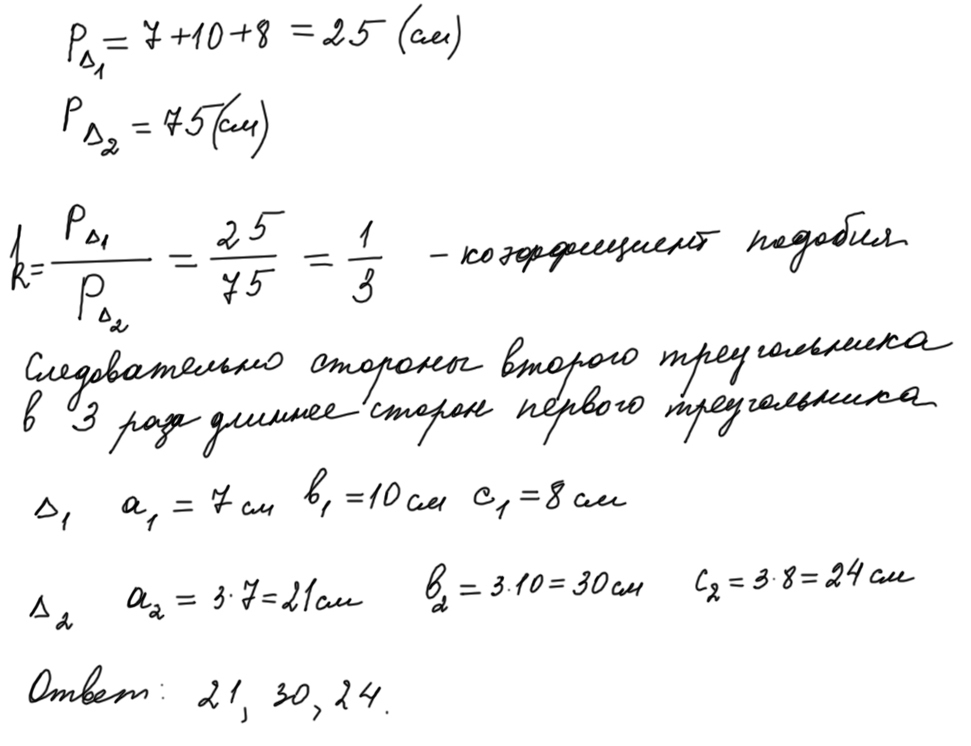 P△₁ = 7 + 10 + 8 = 25 (см)
P△₂ = 75 (см)
k = P△₁ / P△₂ = 25 / 75 = 1 / 3 – коэффициент подобия
Следовательно стороны второго треугольника
в 3 раза длиннее сторон первого треугольника
△₁ a₁ = 7 см b₁ = 10 см c₁ = 8 см
△₂ a₂ = 3·7 = 21 см b₂ = 3·10 = 30 см c₂ = 3·8 = 24 см
Ответ: 21, 30, 24.